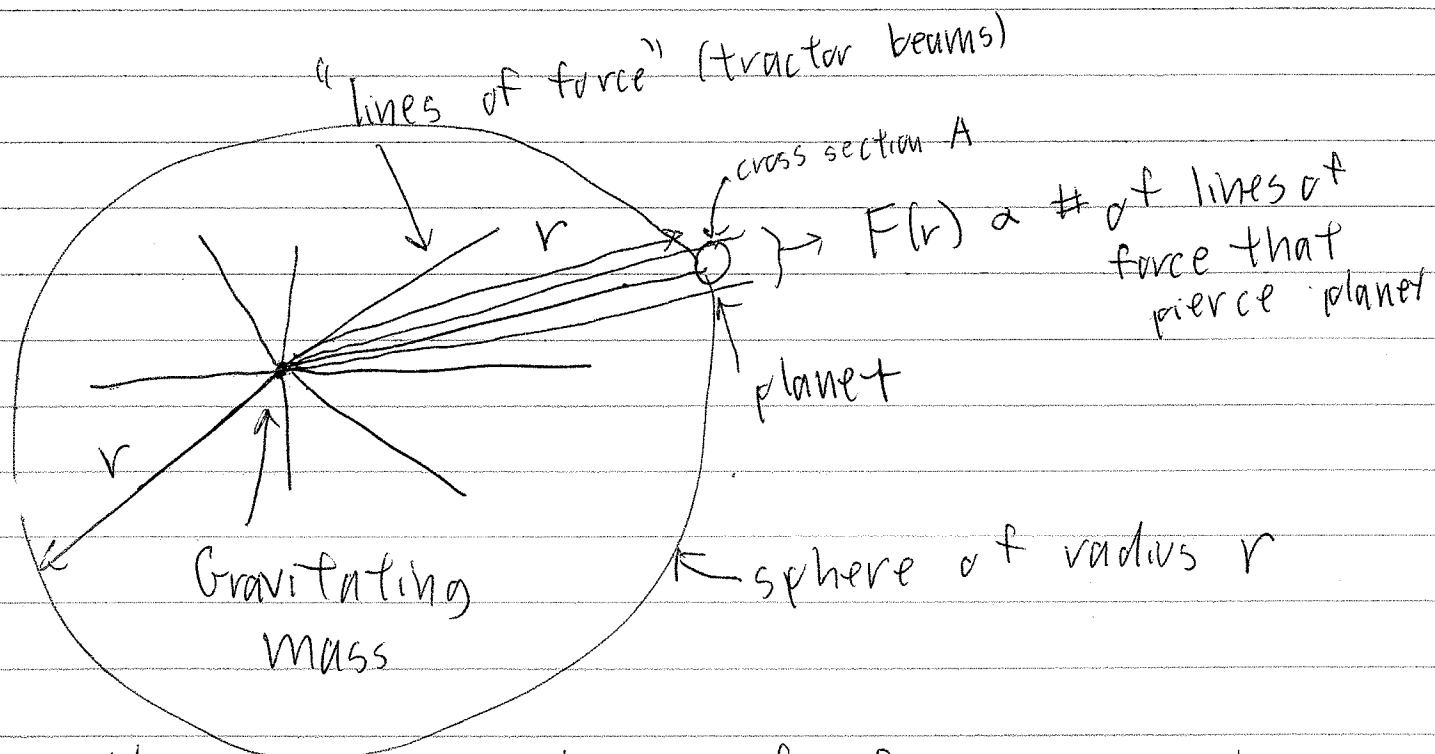 "lines of force" (tractor beams)
cross section A
r
F(r) ∝ # of lines of
force that
pierce planet
planet
r
Gravitating
mass
sphere of radius r